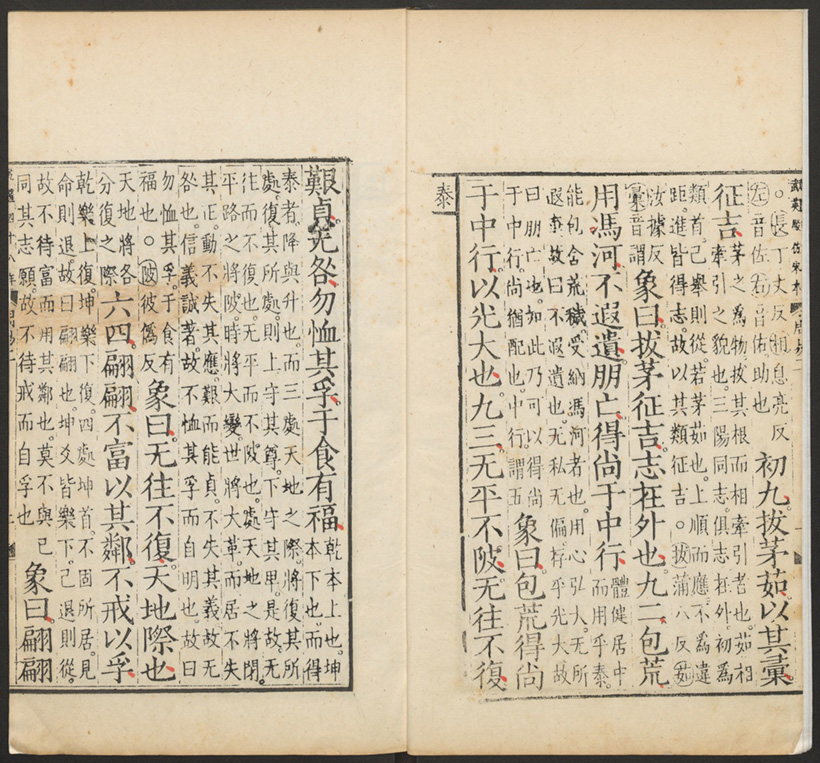 武英殿仿宋本
周易二
。長丁丈反相息亮反
左音佐右音佑助也
初九拔茅茹以其彙
征吉
茅之為物拔其根而相牽引者也茹相
牽引之貌也三陽同志俱志在外初為
類首己舉則從若茅茹也上順而應不為違
距進皆得志故以其類征吉。拔蒲八反茹
汝據反
彙音謂
象曰拔茅征吉志在外也九二包荒
用馮河不遐遺朋亡得尚于中行
體健居中
而用乎泰
能包含荒穢受納馮河者也用心弘大无所
遐棄故曰不遐遺也无私无偏存乎光大故
曰朋亡也如此乃可以得尚
于中行尚猶配也中行謂五
象曰包荒得尚
于中行以光大也九三无平不陂无往不復
泰
艱貞无咎勿恤其孚于食有福
乾本上也坤
本下也而得
泰者降與升也而三處天地之際將復其所
處復其所處則上守其尊下守其卑是故无
往而不復也无平而不陂也處天地之將閉
平路之將陂時將大變世將大革而居不失
其正動不失其應艱而能貞不失其義故无
咎也信義誠著故不恤其孚而自明也故曰
勿恤其孚于食有
福也。陂彼偽反
象曰无往不復天地際也
天地將各
分復之際
六四翩翩不富以其鄰不戒以孚
乾樂上復坤樂下復四處坤首不固所居見
命則退故曰翩翩也坤爻皆樂下己退則從
故不待富而用其鄰也莫不與己
同其志願故不待戒而自孚也
象曰翩翩